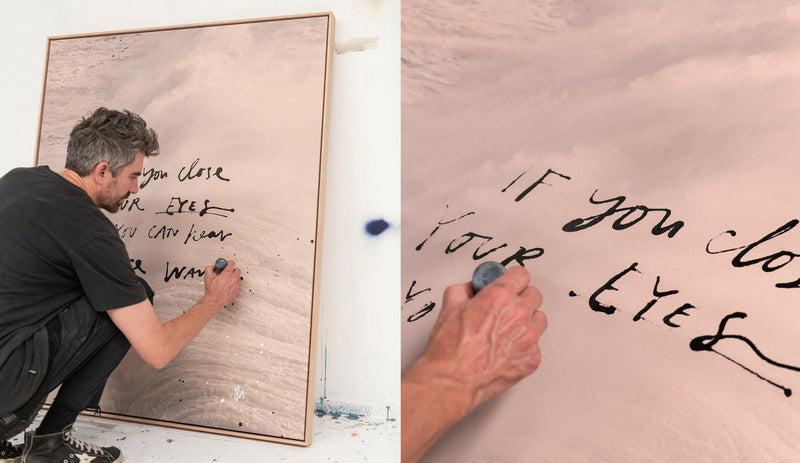 you close
UR EYES
YOU CAN hear
WAV
IF you clos
YOUR EYES
Yo